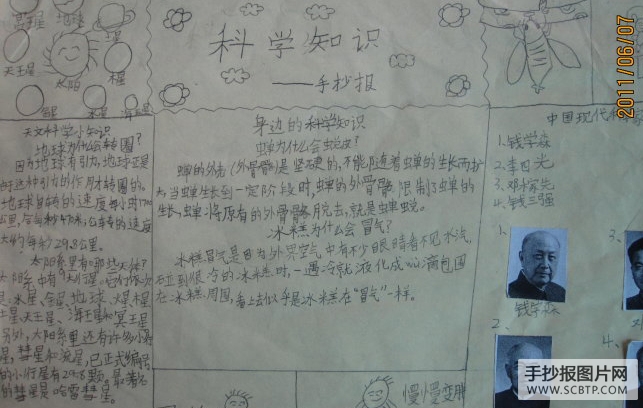 科学知识
——手抄报
2011/06/07
地球
天王星
太阳
木星
海王星
天文科学小知识
地球为什么会转圈?
因为地球有引力,地球正是
由于这种引力的作用才转圈的。
地球自转的速度每小时1700
公里,
的速度
大约每秒29.8公里。
太阳系里有哪些天体?
太阳系中有九大行星。它们依次
是水星、金星、地球、火星、木星
土星、天王星、海王星和冥王星
另外,太阳系里还有许多小行
星,彗星和流星,已正式编号
的小行星有2958颗。最著名
的彗星是哈雷彗星。
身边的科学知识
蝉为什么会蜕皮?
蝉的外壳(外骨骼)是坚硬的,不能随着蝉的生长而扩
大,当蝉生长到一定阶段时,蝉的外骨骼限制了蝉的
生长,蝉将原有的外骨骼脱去,就是蝉蜕。
冰糕为什么会冒气?
冰糕冒气是因为外界空气中有不少眼睛看不见水汽,
碰到很冷的冰糕时,一遇冷就液化成
滴包围
在冰糕周围,看上去似乎是冰糕在“冒气”一样。
中国现代科
家
1.钱学森
2.李四光
3.邓稼先
4.钱三强
1、
3、
钱学森
2、
4、
慢慢变胖
手抄报图片网
WWW.SCBTP.COM